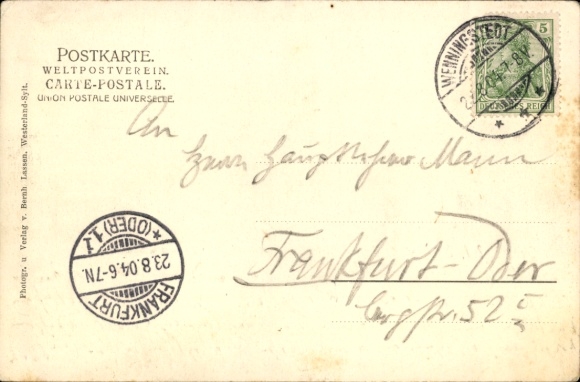 POSTKARTE.
WELTPOSTVEREIN.
CARTE-POSTALE.
UNION POSTALE UNIVERSELLE.
WENNINGSTEDT
8.04.7-8V.
5
DEUTSCHES REICH
An
Herrn Hauptlehrer Mann
Frankfurt-Oder
Bergstr. 52 I
FRANKFURT
23.8.04.6-7N.
*(ODER)1.1
Photogr. u Verlag v. Bernh. Lassen, Westerland-Sylt.